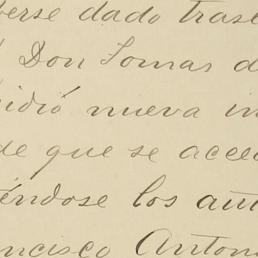 berse dado trasl
Don Tomas d
idió nueva in
de que se acced
éndose los aut
ncisco Anton